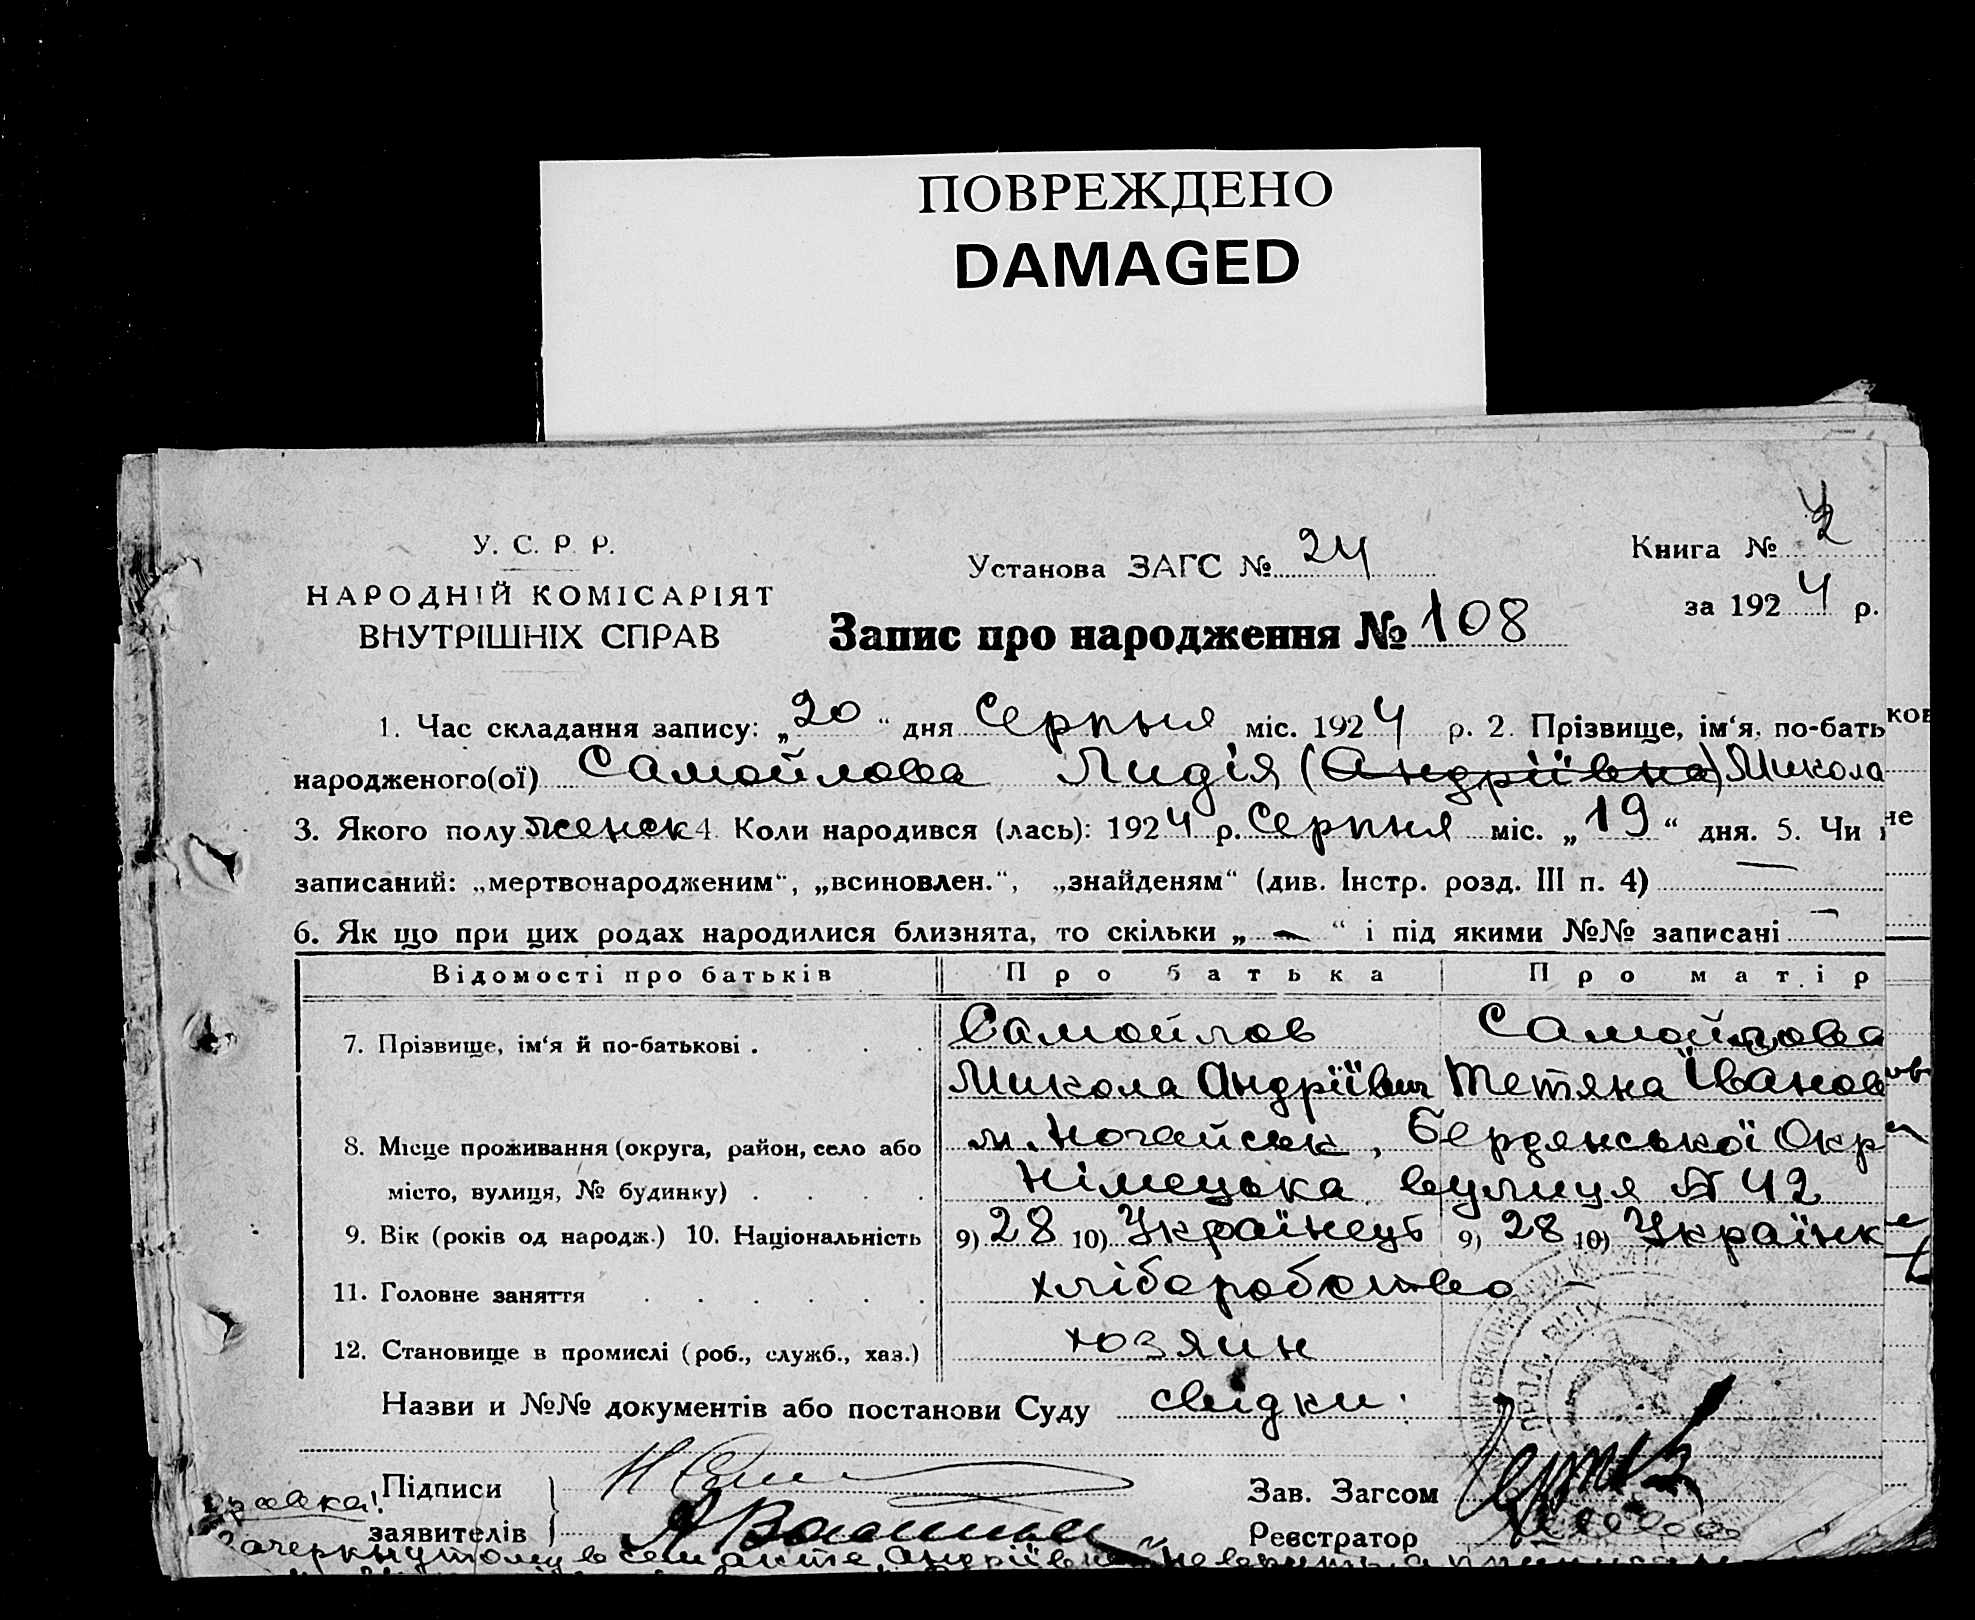 ПОВРЕЖДЕНО
DAMAGED
У. С. Р. Р.
НАРОДНІЙ КОМІСАРІЯТ
ВНУТРІШНІХ СПРАВ
Установа ЗАГС № 24
Книга № 2
за 1924 р.
Запис про народження № 108
1. Час складання запису: „20“ дня Серпня міс. 1924 р. 2. Прізвище, ім‘я, по-бать
народженого(ої) Самойлова Лидія (Андріївна) Микола
3. Якого полу женск 4. Коли народився (лась): 1924 р. Серпня міс. „19“ дня. 5. Чи
записаний: „мертвонародженим“, „всиновлен.“, „знайденям“ (див. Інстр. розд. III п. 4) —
6. Як що при цих родах народилися близнята, то скільки „—“ і під якими №№ записані —
Відомості про батьків Про батька Про матір
7. Прізвище, ім‘я й по-батькові . Самойлов Самойлова
Микола Андрійвич Тетяна Іванов
8. Місце проживання (округа, район, село або м. Ногайськ, Бердянської Окр
місто, вулиця, № будинку) Німецька вулиця № 42
9. Вік (років од народж.) 10. Національність 9) 28 10) Українець 9) 28 10) Українк
11. Головне заняття хліборобство
12. Становище в промислі (роб., служб., хаз.) хозяин
Назви и №№ документів або постанови Суду свідки:
Підписи
заявителів
Зав. Загсом
Реєстратор
Зачеркнутому в сем акте „Андріївна“ не верить, а